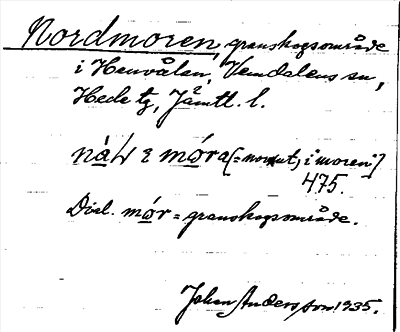 Nordmoren, granskogsområde
i Henvålan, Vemdalens sn,
Hede tg, Jämtl. l.
mora[=
i moren]
475.
Dial. mór = granskogsområde.
Johan Andersson 1935.